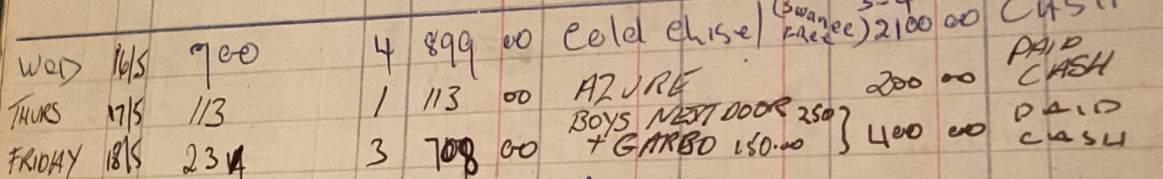 WED 16/5 900 4 899 00 Cold Chisel (Swanee) 2100 00 CASH
THURS 17/5 113 1 113 00 AZURE 200 00 PAID CASH
FRIDAY 18/5 234 3 708 00 BOYS NEXT DOOR 250 + GARBO 150.00 } 400 00 PAID CASH